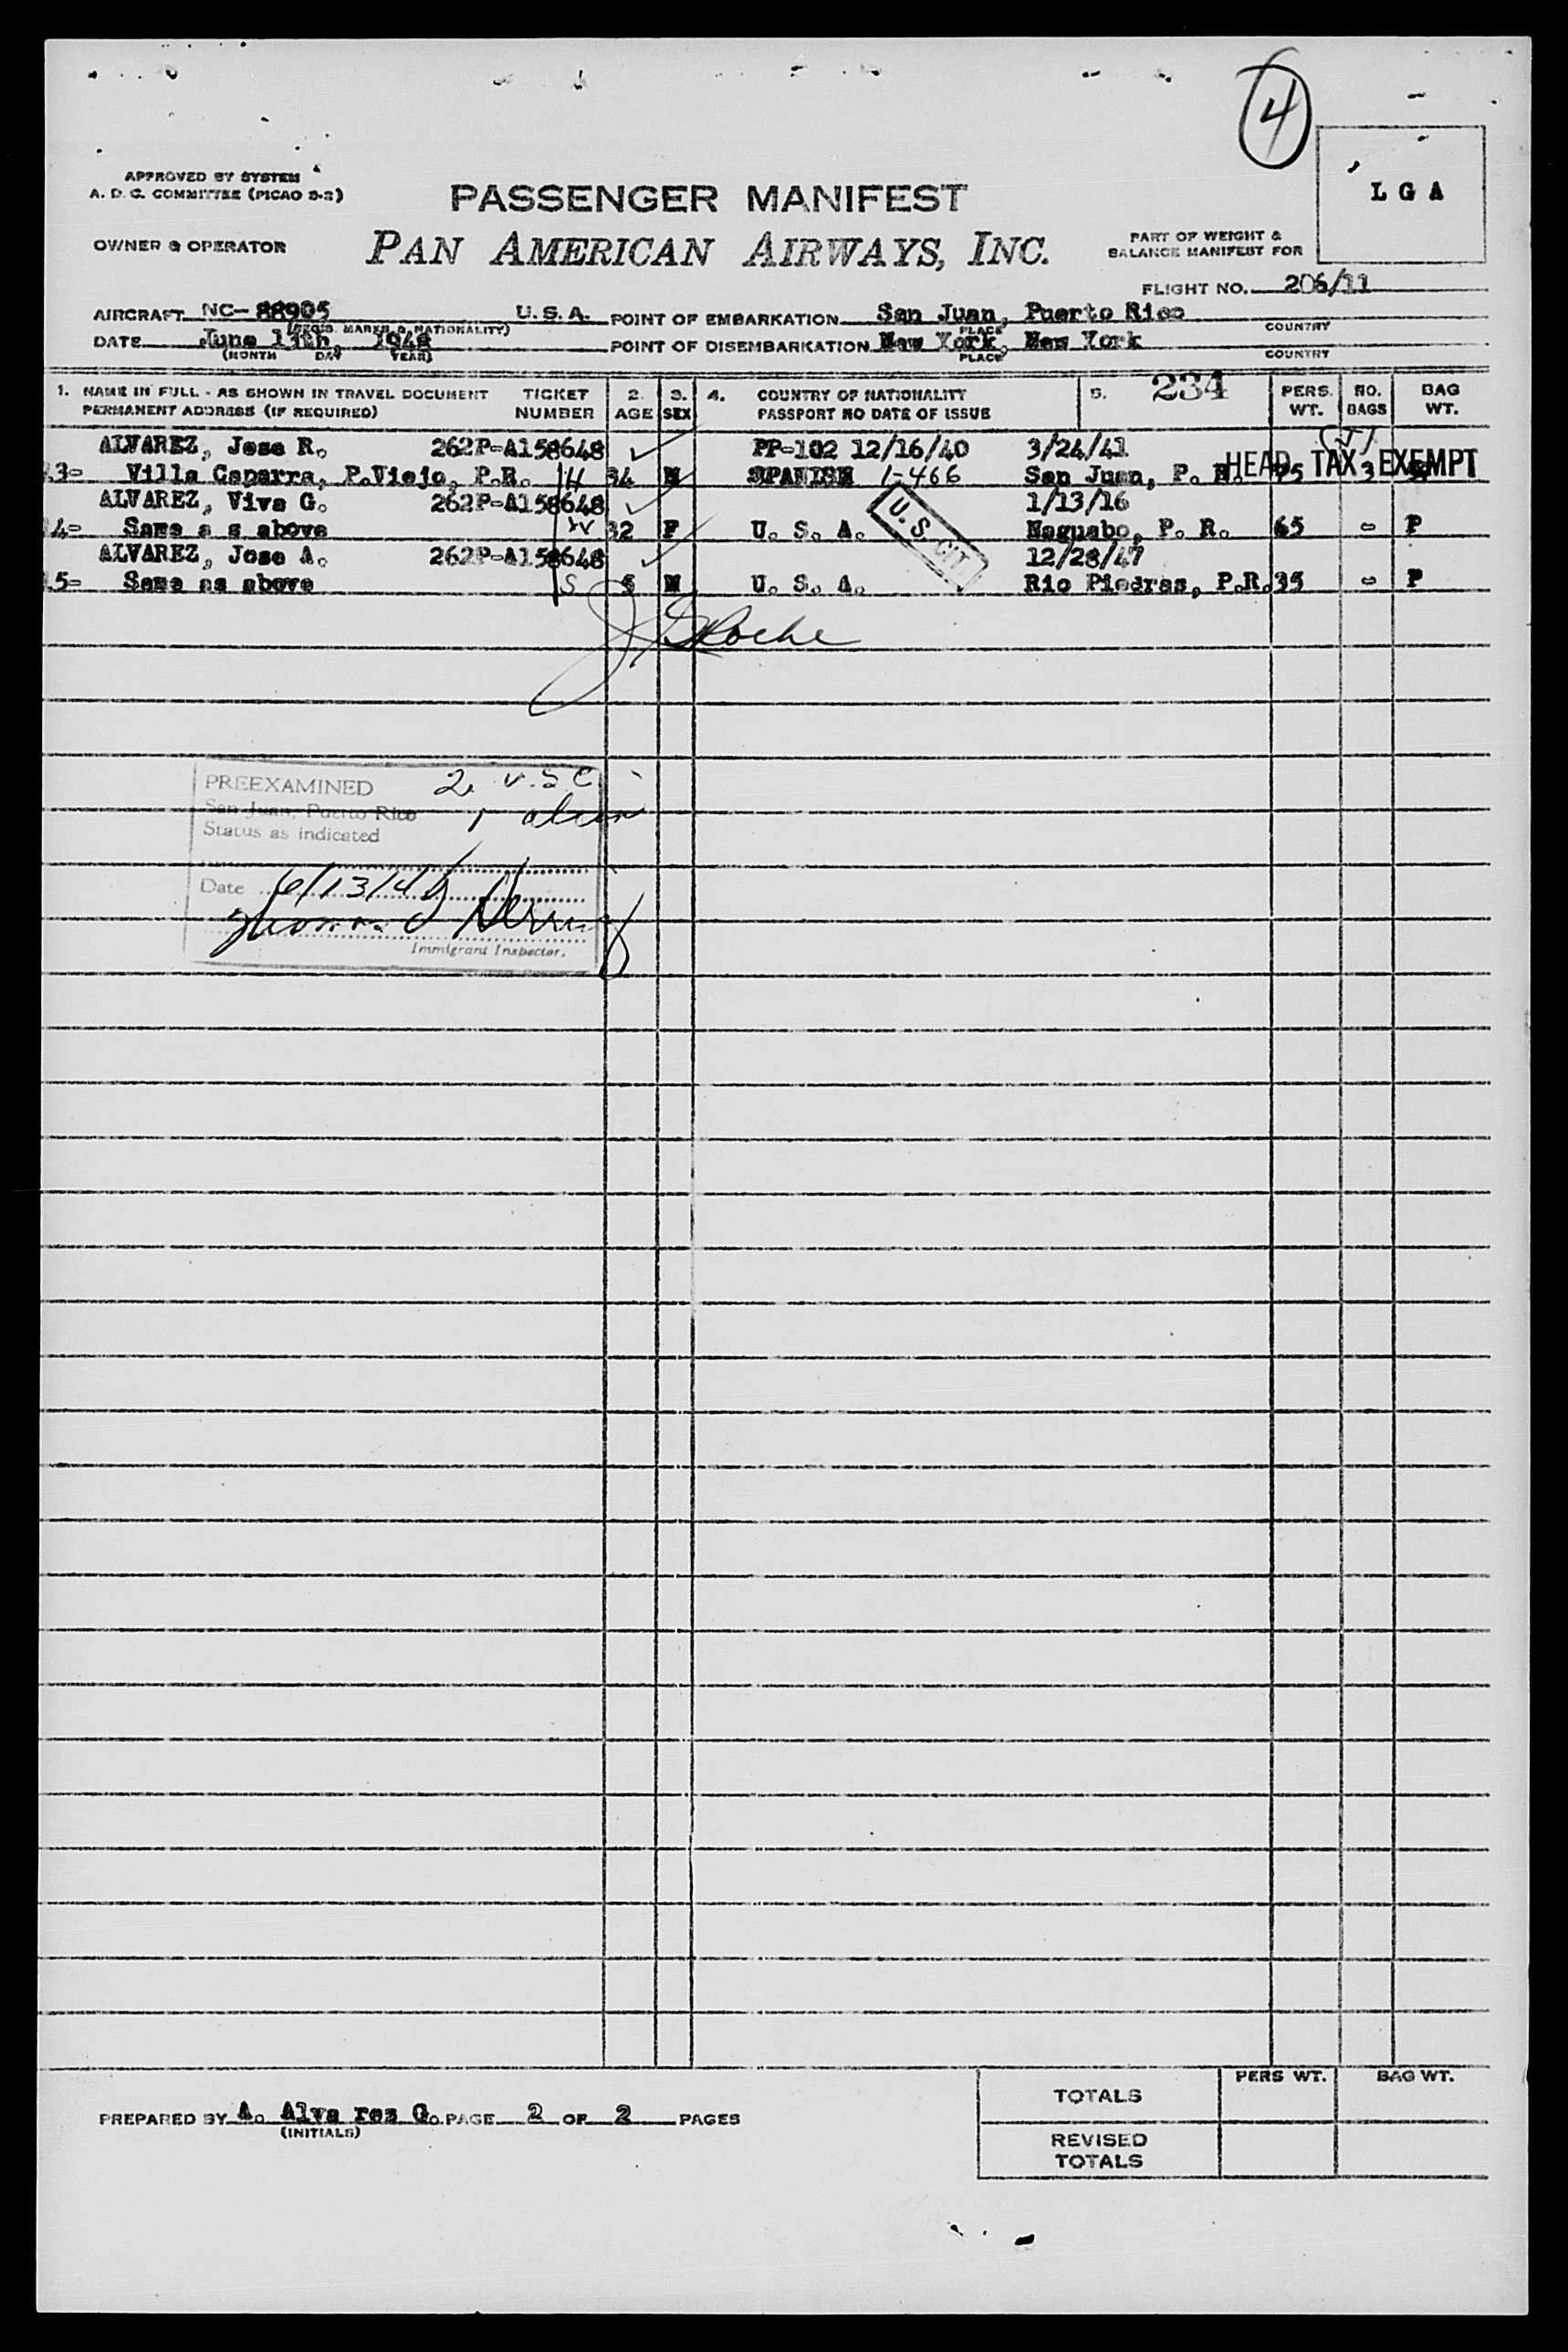 4
APPROVED BY SYSTEM
A. D. C. COMMITTEE (PICAO D-2)
PASSENGER MANIFEST
L G A
OWNER & OPERATOR
PAN AMERICAN AIRWAYS, INC.
PART OF WEIGHT &
BALANCE MANIFEST FOR
FLIGHT NO. 206/11
AIRCRAFT NC-88905 U. S. A. POINT OF EMBARKATION San Juan, Puerto Rico
(REGIS. MARKS & NATIONALITY) PLACE COUNTRY
DATE June 13th, 1948 POINT OF DISEMBARKATION New York, New York
(MONTH DAY YEAR) PLACE COUNTRY
1. NAME IN FULL - AS SHOWN IN TRAVEL DOCUMENT TICKET 2. 3. 4. COUNTRY OF NATIONALITY 5. 234 PERS. NO. BAG
PERMANENT ADDRESS (IF REQUIRED) NUMBER AGE SEX PASSPORT NO DATE OF ISSUE WT. BAGS WT.
ALVAREZ, Jose R. 262P-A158648 PP-102 12/16/40 3/24/41
3- Villa Caparra, P.Viejo, P.R. H 34 M SPANISH 1-466 San Juan, P. R. 3
HEAD TAX EXEMPT
ALVAREZ, Viva G. 262P-A158648 1/13/16
4- Same a s above W 32 F U. S. A. Naguabo, P. R. 65 - P
U. S. CIT
ALVAREZ, Jose A. 262P-A158648 12/28/47
5- Same as above S 5 M U. S. A. Rio Piedras, P.R. 35 - P
Roche
PREEXAMINED 2 U.S.C.
San Juan, Puerto Rico 1 alien
Status as indicated
Date 6/13/48
Immigrant Inspector.
PREPARED BY A. Alva rez G. PAGE 2 OF 2 PAGES
(INITIALS)
PERS WT. BAG WT.
TOTALS
REVISED
TOTALS